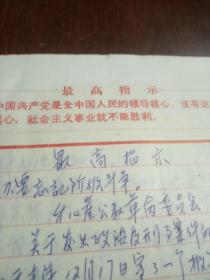 最高指示
中国共产党是全中国人民的领导核心。没有这
核心，社会主义事业就不能胜利。
最高指示
不要忘记阶级斗争。
公社革命委员会
关于发生政治反刑事件的
12月17日